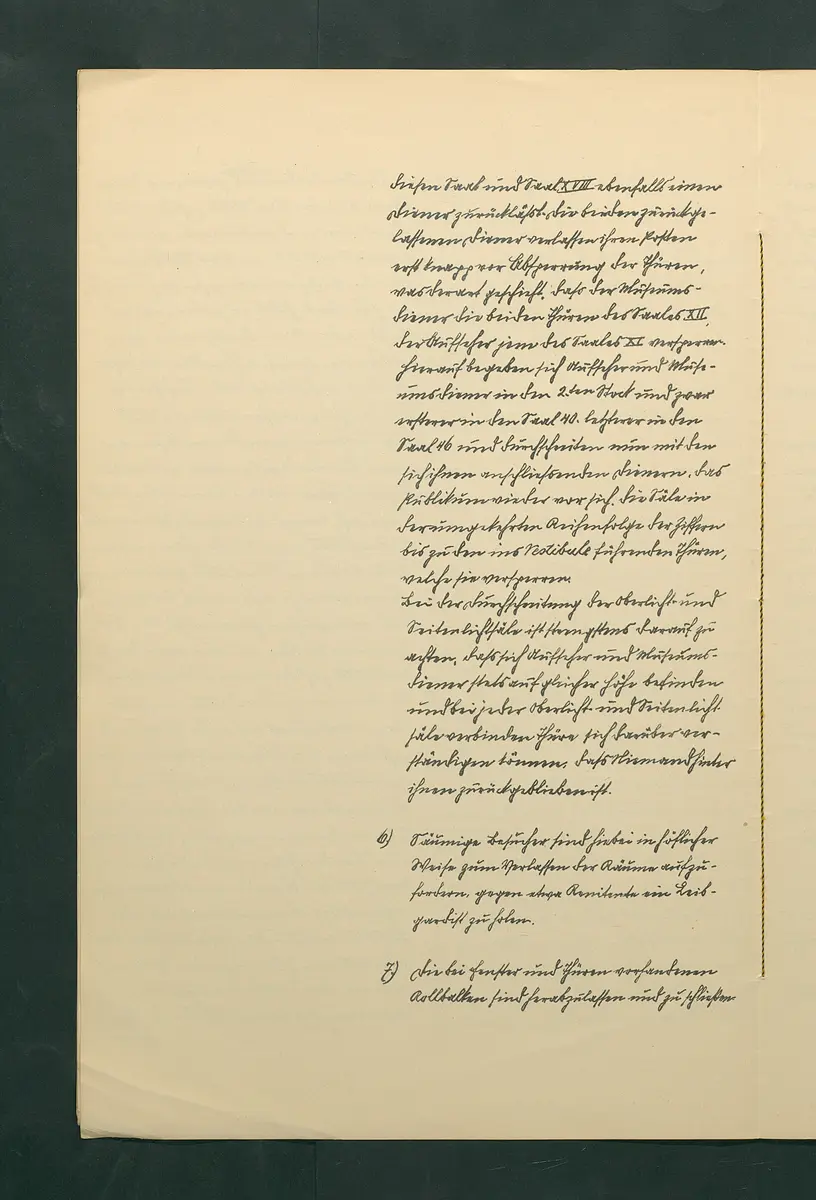 diesen Saal und Saal XVIII ebenfalls einen
Diener zurückläßt. Die beiden zurückge-
lassenen Diener verlassen ihren Posten
erst knapp vor Absperrung der Thüren,
was derart geschieht, dass der Museums-
diener die beiden Thüren des Saales XII,
der Aufseher jene des Saales XI versperren.
Hierauf begeben sich Aufseher und Muse-
umsdiener in den 2.ten Stock und zwar
ersterer in den Saal 40. letzterer in den
Saal 46 und durchschreiten nun mit den
sich ihnen anschließenden Dienern, das
Publikum wieder vor sich, die Säle in
der umgekehrten Reihenfolge der Ziffern
bis zu den ins Vestibule führenden Thüren,
welche sie versperren.
Bei der Durchschreitung der Oberlicht- und
Seitenlichtsäle ist strengstens darauf zu
achten, dass sich Aufseher und Museums-
diener stets auf gleicher Höhe befinden
und bei jeder Oberlicht- und Seitenlicht
säle verbinden Thüre sich darüber ver-
ständigen können, dass Niemand hinter
ihnen zurückgeblieben ist.
6) Säumige Besucher sind hiebei in höflicher
Weise zum Verlassen der Räume aufzu-
fordern, gegen etwa Renitente ein Leib-
gardist zu holen.
7) Die bei Fenster und Thüren vorhandenen
Rollbalken sind herabzulassen und zu schließen.